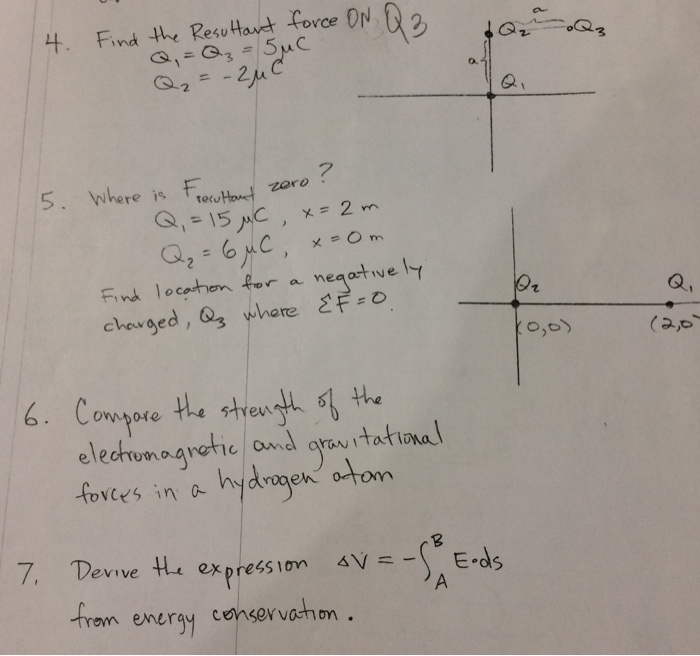 4. Find the Resultant force ON Q3
Q₁ = Q₃ = 5μC
Q₂ = -2μC
a
Q₂
Q₃
a
Q₁
5. Where is F resultant zero?
Q₁ = 15 μC, x = 2 m
Q₂ = 6 μC, x = 0 m
Find location for a negatively
charged, Q₃ where ΣF = 0.
Q₂
Q₁
(0,0)
(2,0
6. Compare the strength of the
electromagnetic and gravitational
forces in a hydrogen atom
7. Derive the expression ΔV = -∫ₐᴮ E·ds
from energy conservation.